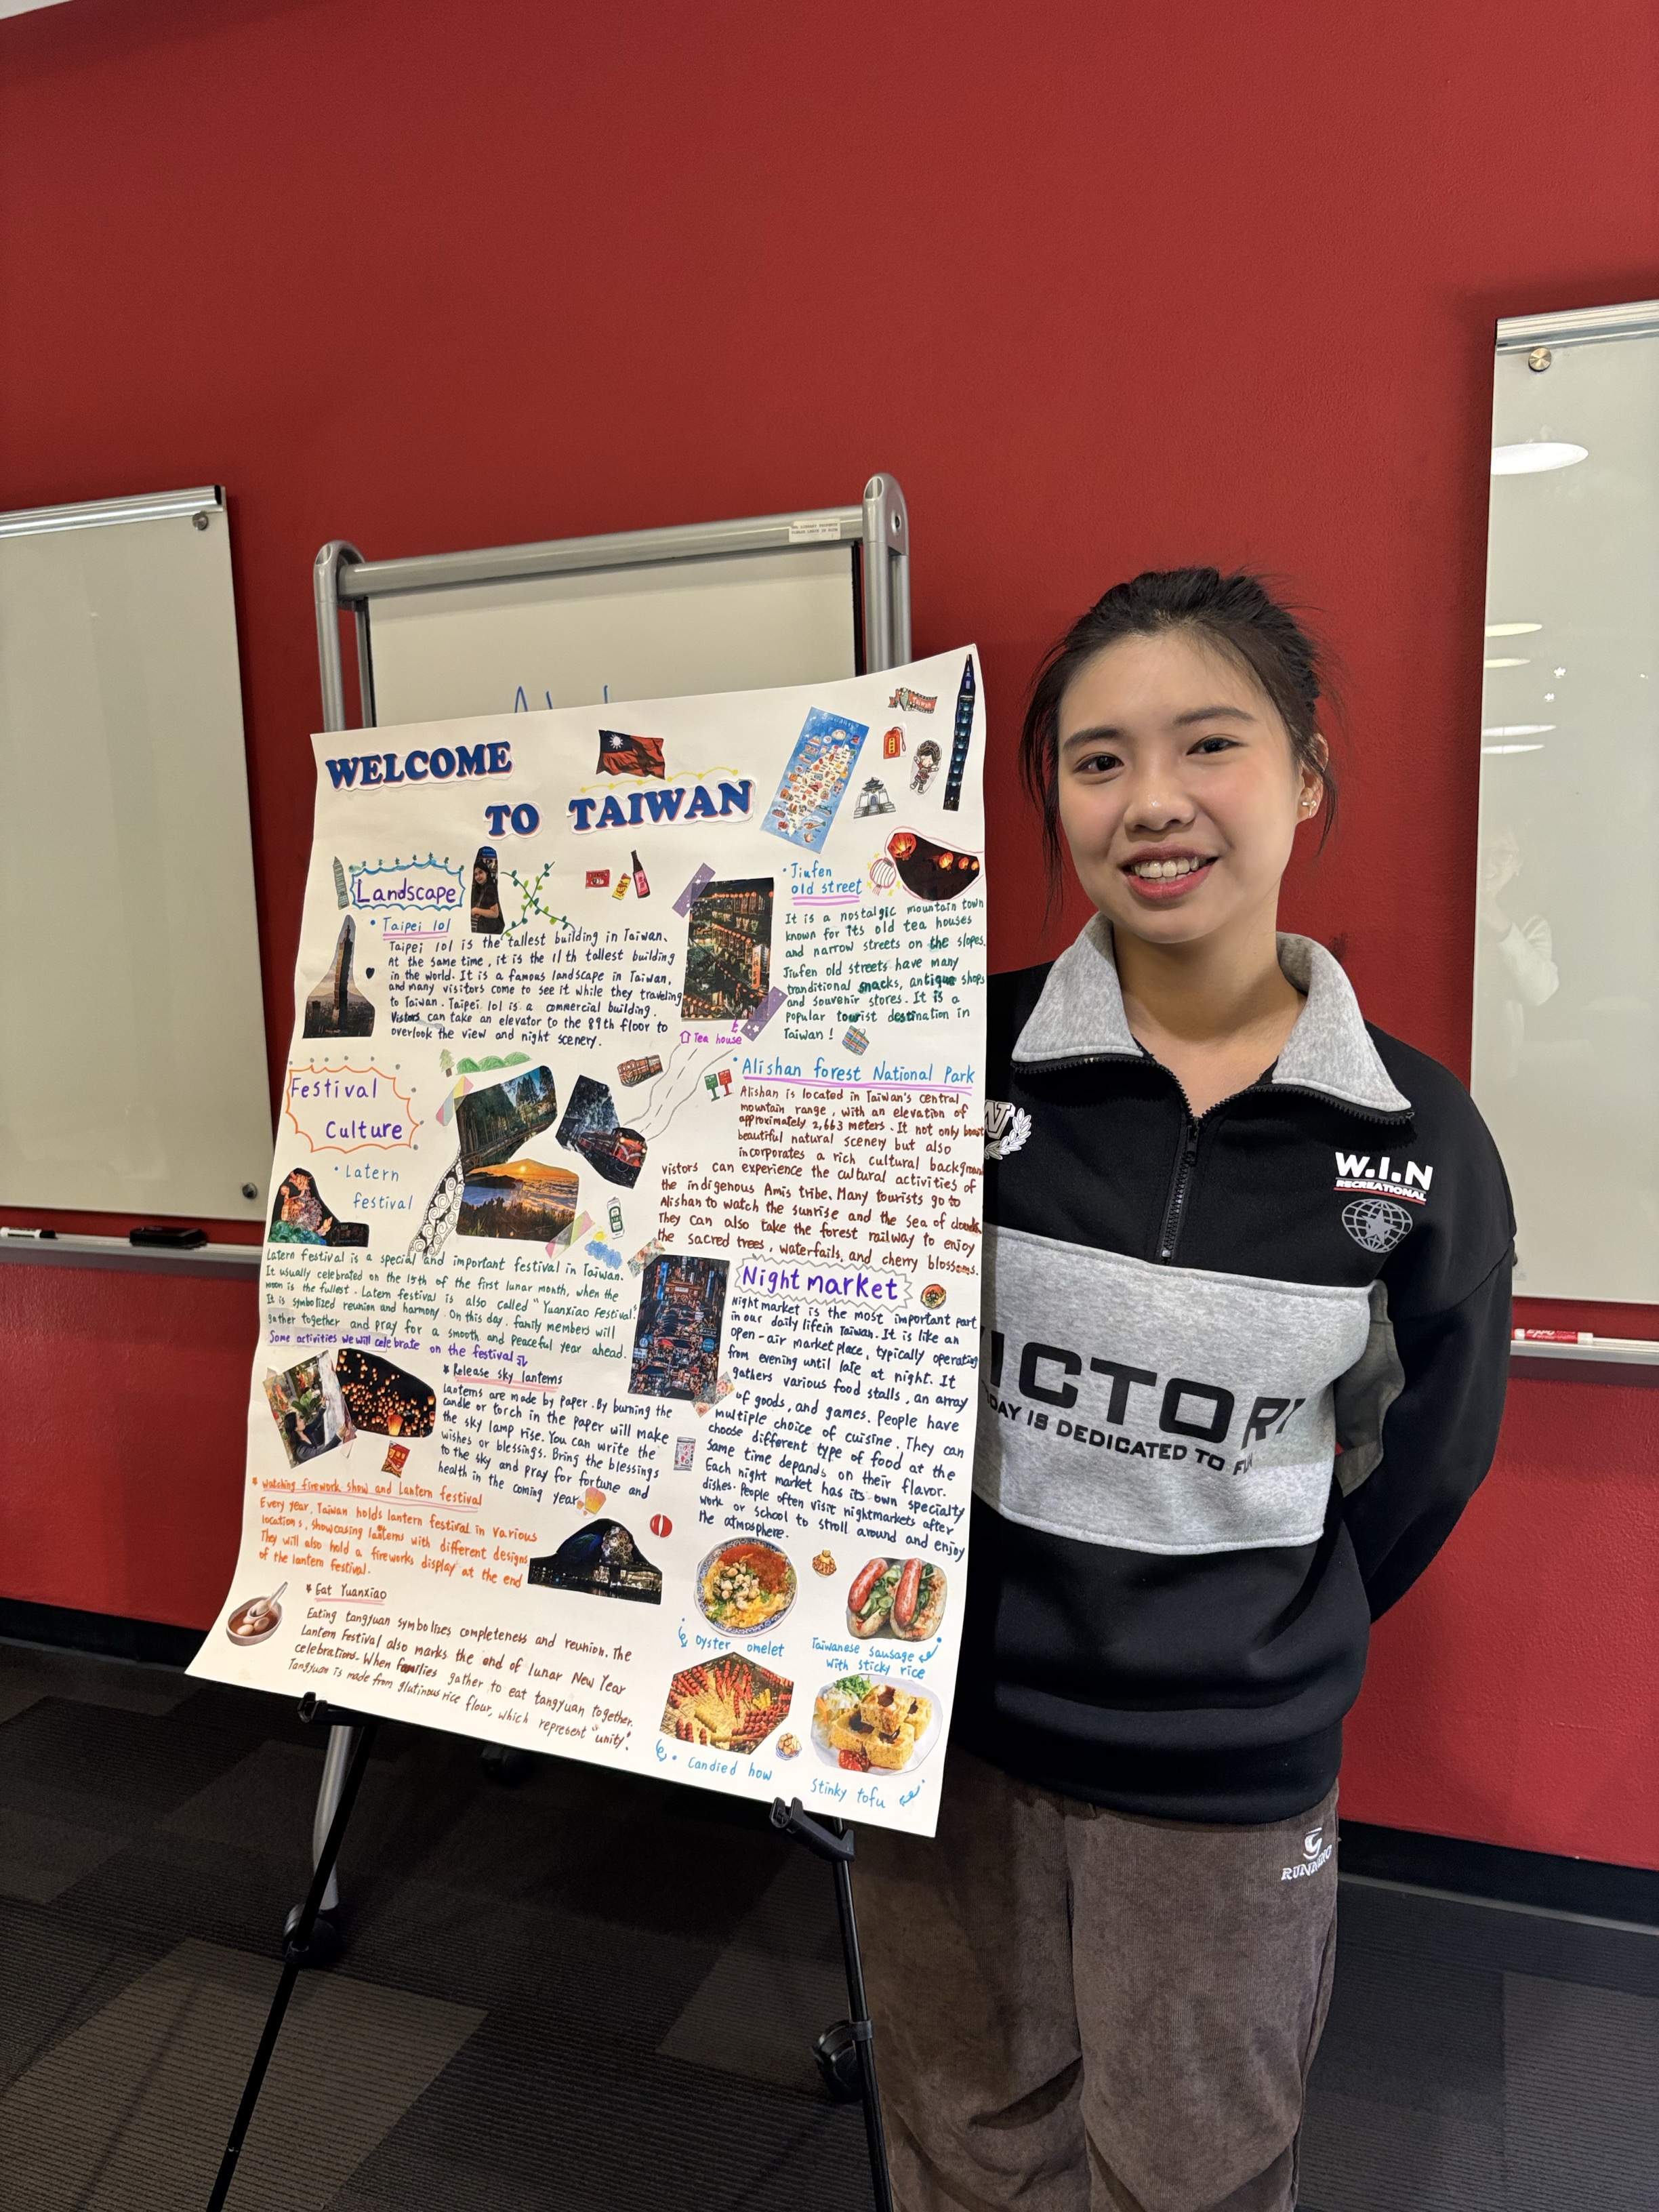 WELCOME
TO TAIWAN
Landscape
• Taipei 101
Taipei 101 is the tallest building in Taiwan.
At the same time, it is the 11th tallest building
in the world. It is a famous landscape in Taiwan,
and many visitors come to see it while they traveling
to Taiwan. Taipei 101 is a commercial building.
can take an elevator to the 89th floor to
overlook the view and night scenery.
• Jiufen
old street
It is a nostalgic mountain town
known for its old tea houses
and narrow streets on the slopes.
Jiufen old streets have many
tranditional snacks, antique shops
and souvenir stores. It is a
popular tourist destination in
Taiwan!
Tea house
• Alishan forest National Park
Alishan is located in Taiwan's central
mountain range, with an elevation of
approximately 2,663 meters. It not only
beautiful natural scenery but also
incorporates a rich cultural background
vistors can experience the cultural activities of
the indigenous Amis tribe. Many tourists go to
Alishan to watch the sunrise and the sea of clouds.
They can also take the forest railway to enjoy
the sacred trees, waterfalls, and cherry blossoms.
Festival
Culture
• Latern
festival
Latern festival is a special and important festival in Taiwan.
It usually celebrated on the 15th of the first lunar month, when the
moon is the fullest. Latern festival is also called "Yuanxiao Festival."
It is symbolized reunion and harmony. On this day, family members will
gather together and pray for a smooth and peaceful year ahead.
Some activities we will celebrate on the festival
* Release sky lanterns
Lanterns are made by paper. By burning the
candle or torch in the paper will make
the sky lamp rise. You can write the
wishes or blessings. Bring the blessings
to the sky and pray for fortune and
health in the coming year.
* Watching firework show and Lantern festival
Every year, Taiwan holds lantern festival in various
locations, showcasing lanterns with different designs
They will also hold a fireworks display at the end
of the lantern festival.
* Eat Yuanxiao
Eating tangyuan symbolizes completeness and reunion. The
Lantern Festival also marks the end of lunar New Year
celebrations. When families gather to eat tangyuan together.
Tangyuan is made from glutinous rice flour, which represent "unity".
Night market
Night market is the most important part
in our daily life in Taiwan. It is like an
open-air market place, typically operating
from evening until late at night. It
gathers various food stalls, an array
of goods, and games. People have
multiple choice of cuisine. They can
choose different type of food at the
same time depands on their flavor.
Each night market has its own specialty
dishes. People often visit nightmarkets after
work or school to stroll around and enjoy
the atmosphere.
Oyster omelet
Taiwanese sausage
with sticky rice
• Candied how
Stinky tofu
W.I.N
RECREATIONAL
VICTORY
DAY IS DEDICATED TO